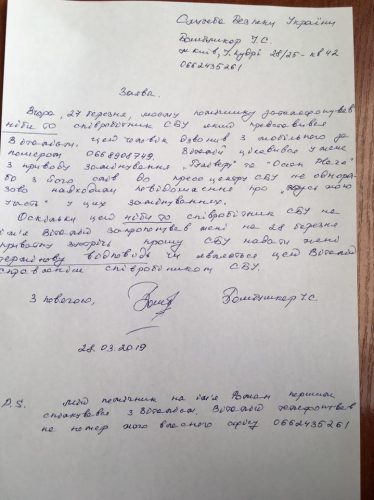 Служба безпеки України
Бомбушкар І.С.
м. Київ, І. Кудрі 28/25 - кв 42
0662435261
Заява.
Вчора, 27 березня, моєму помічнику зателефонував
нібито співробітник СБУ який представився
Віталієм. Цей чоловік дзвонив з мобільного за
номером 0668908749. Віталій цікавився у мене
з приводу замінування "Гулівер" та "Ocean Plaza"
бо з його слів до пресс центру СБУ не однора-
зово надходили повідомлення про мою
участь у цих замінуваннях.
Оскільки цей нібито співробітник СБУ на
ім'я Віталій запропонував мені на 28 березня
приватну зустріч прошу СБУ надати мені
термінову відповідь чи являється цей Віталій
справжнім співробітником СБУ.
З повагою, Бомбушкар І.С.
28.03.2019
P.S. Мій помічник на ім'я Роман першим
спілкувався з Віталієм. Віталій телефонував
на номер мого власного офісу 0662435261